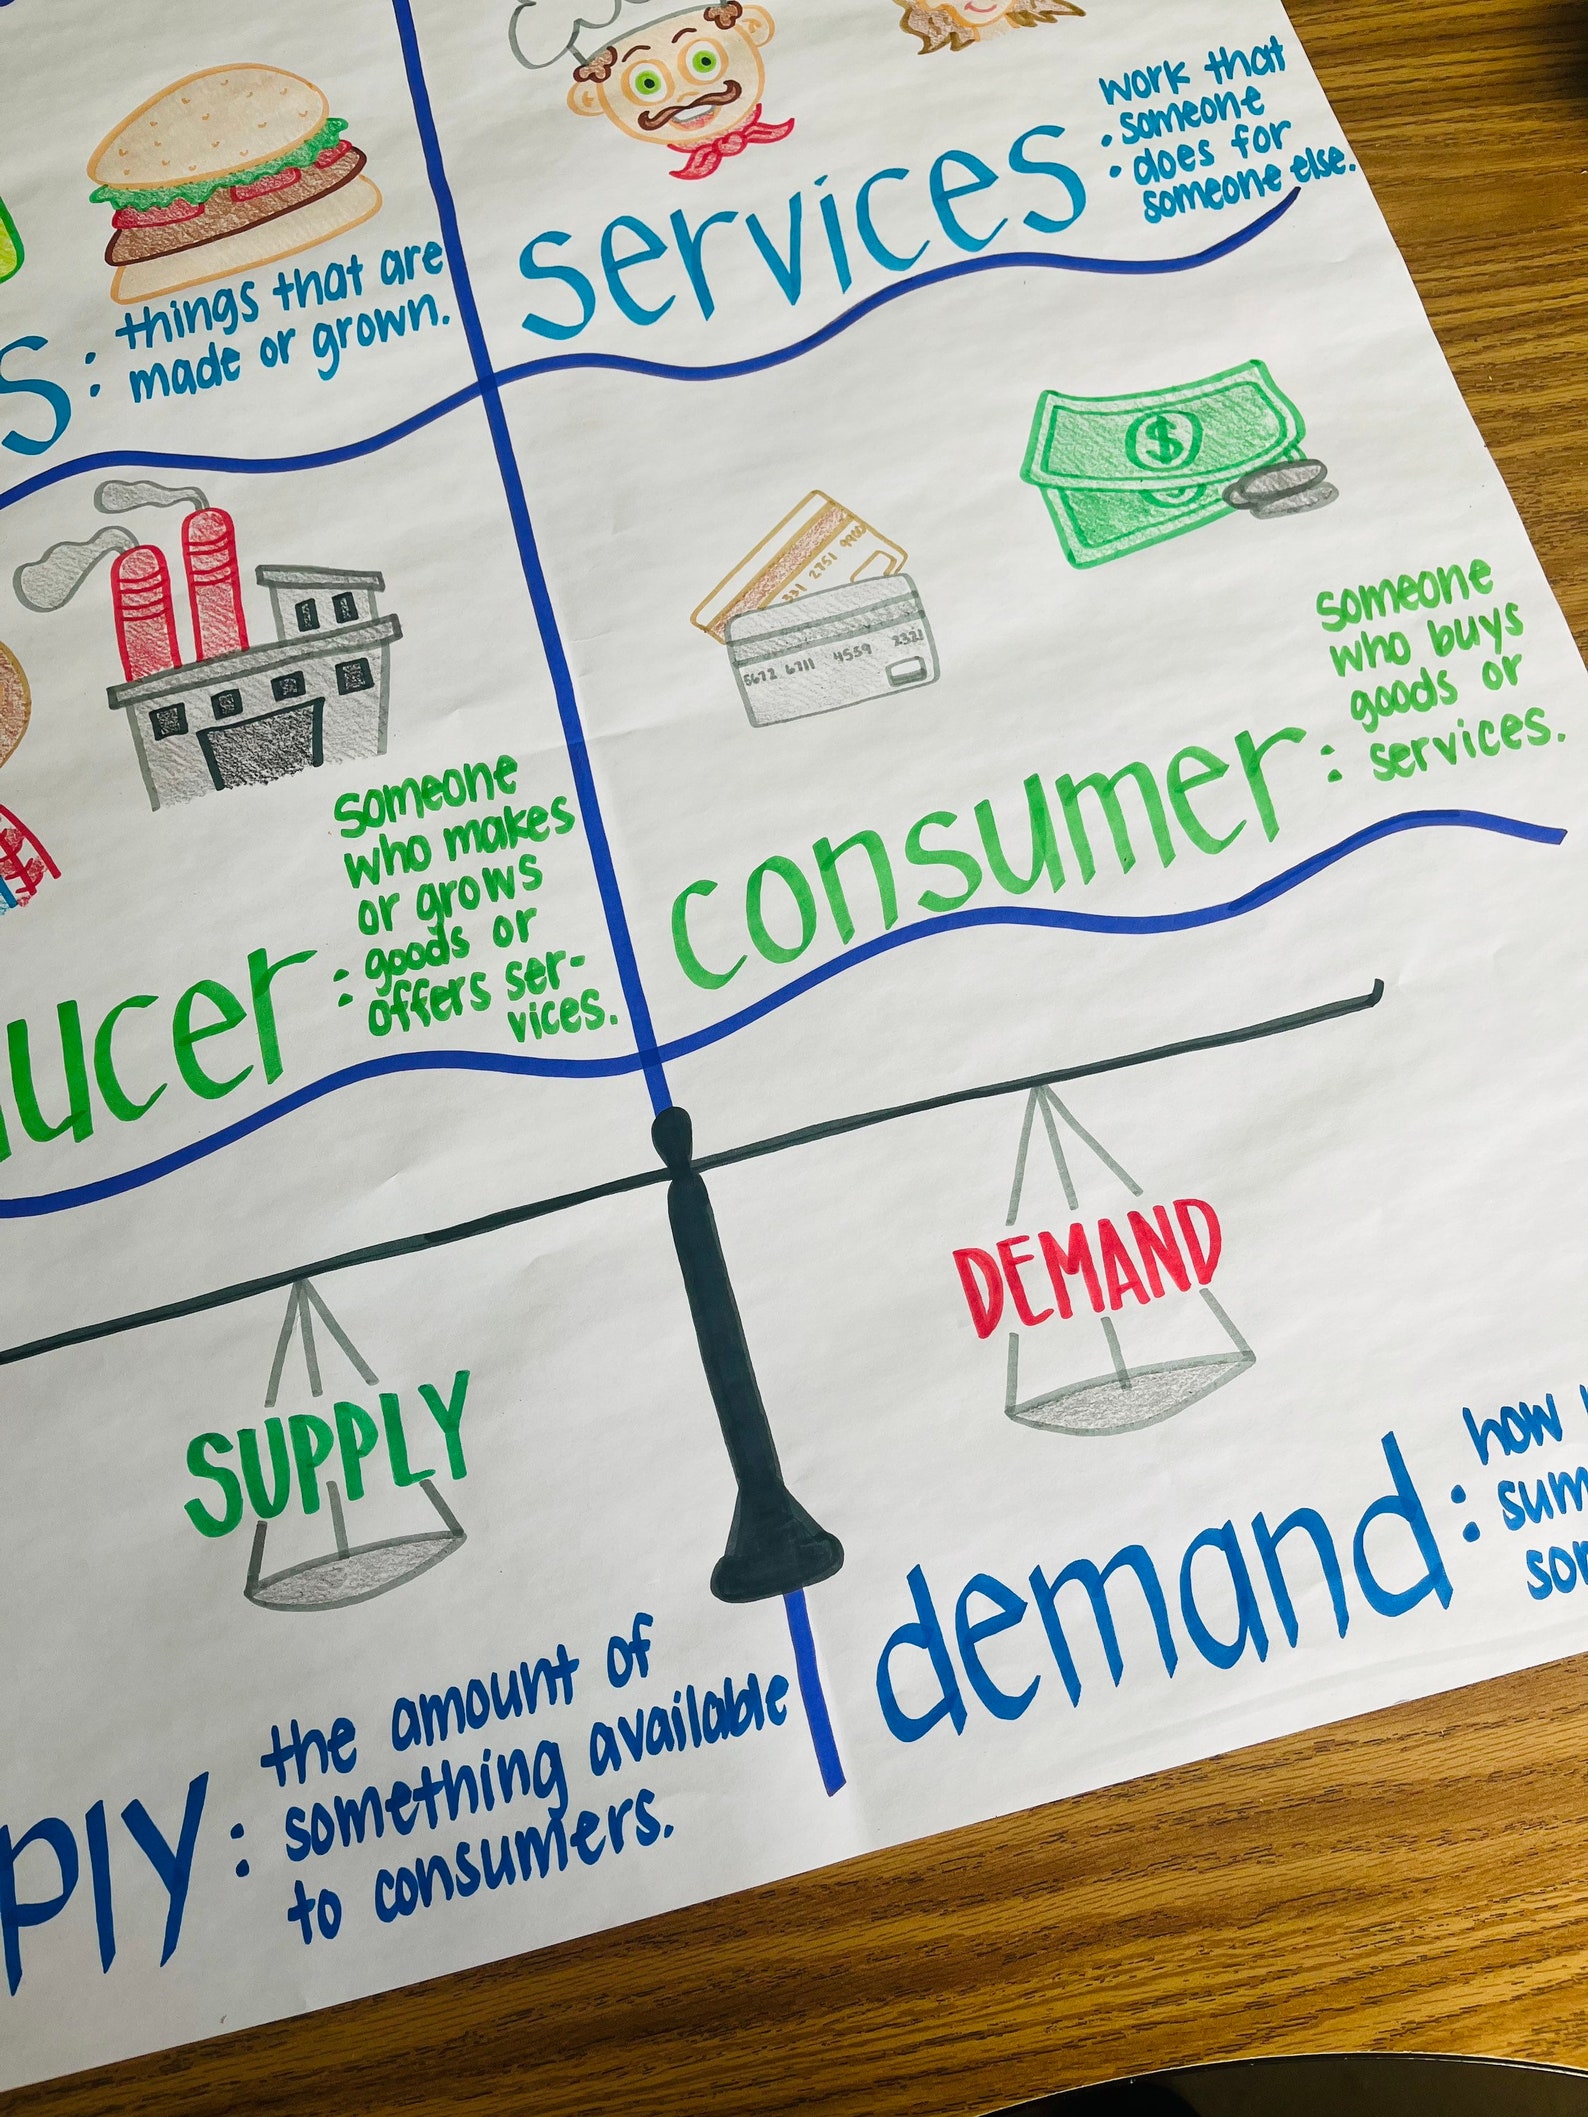 work that
someone
does for
someone else.
services:
things that are
made or grown.
s:
$
331 2751 9900
5672 6711 4559 2321
someone
who buys
goods or
services.
consumer:
someone
who makes
or grows
goods or
offers ser-
vices.
ucer:
DEMAND
SUPPLY
how
demand:
the amount of
something available
to consumers.
ply: